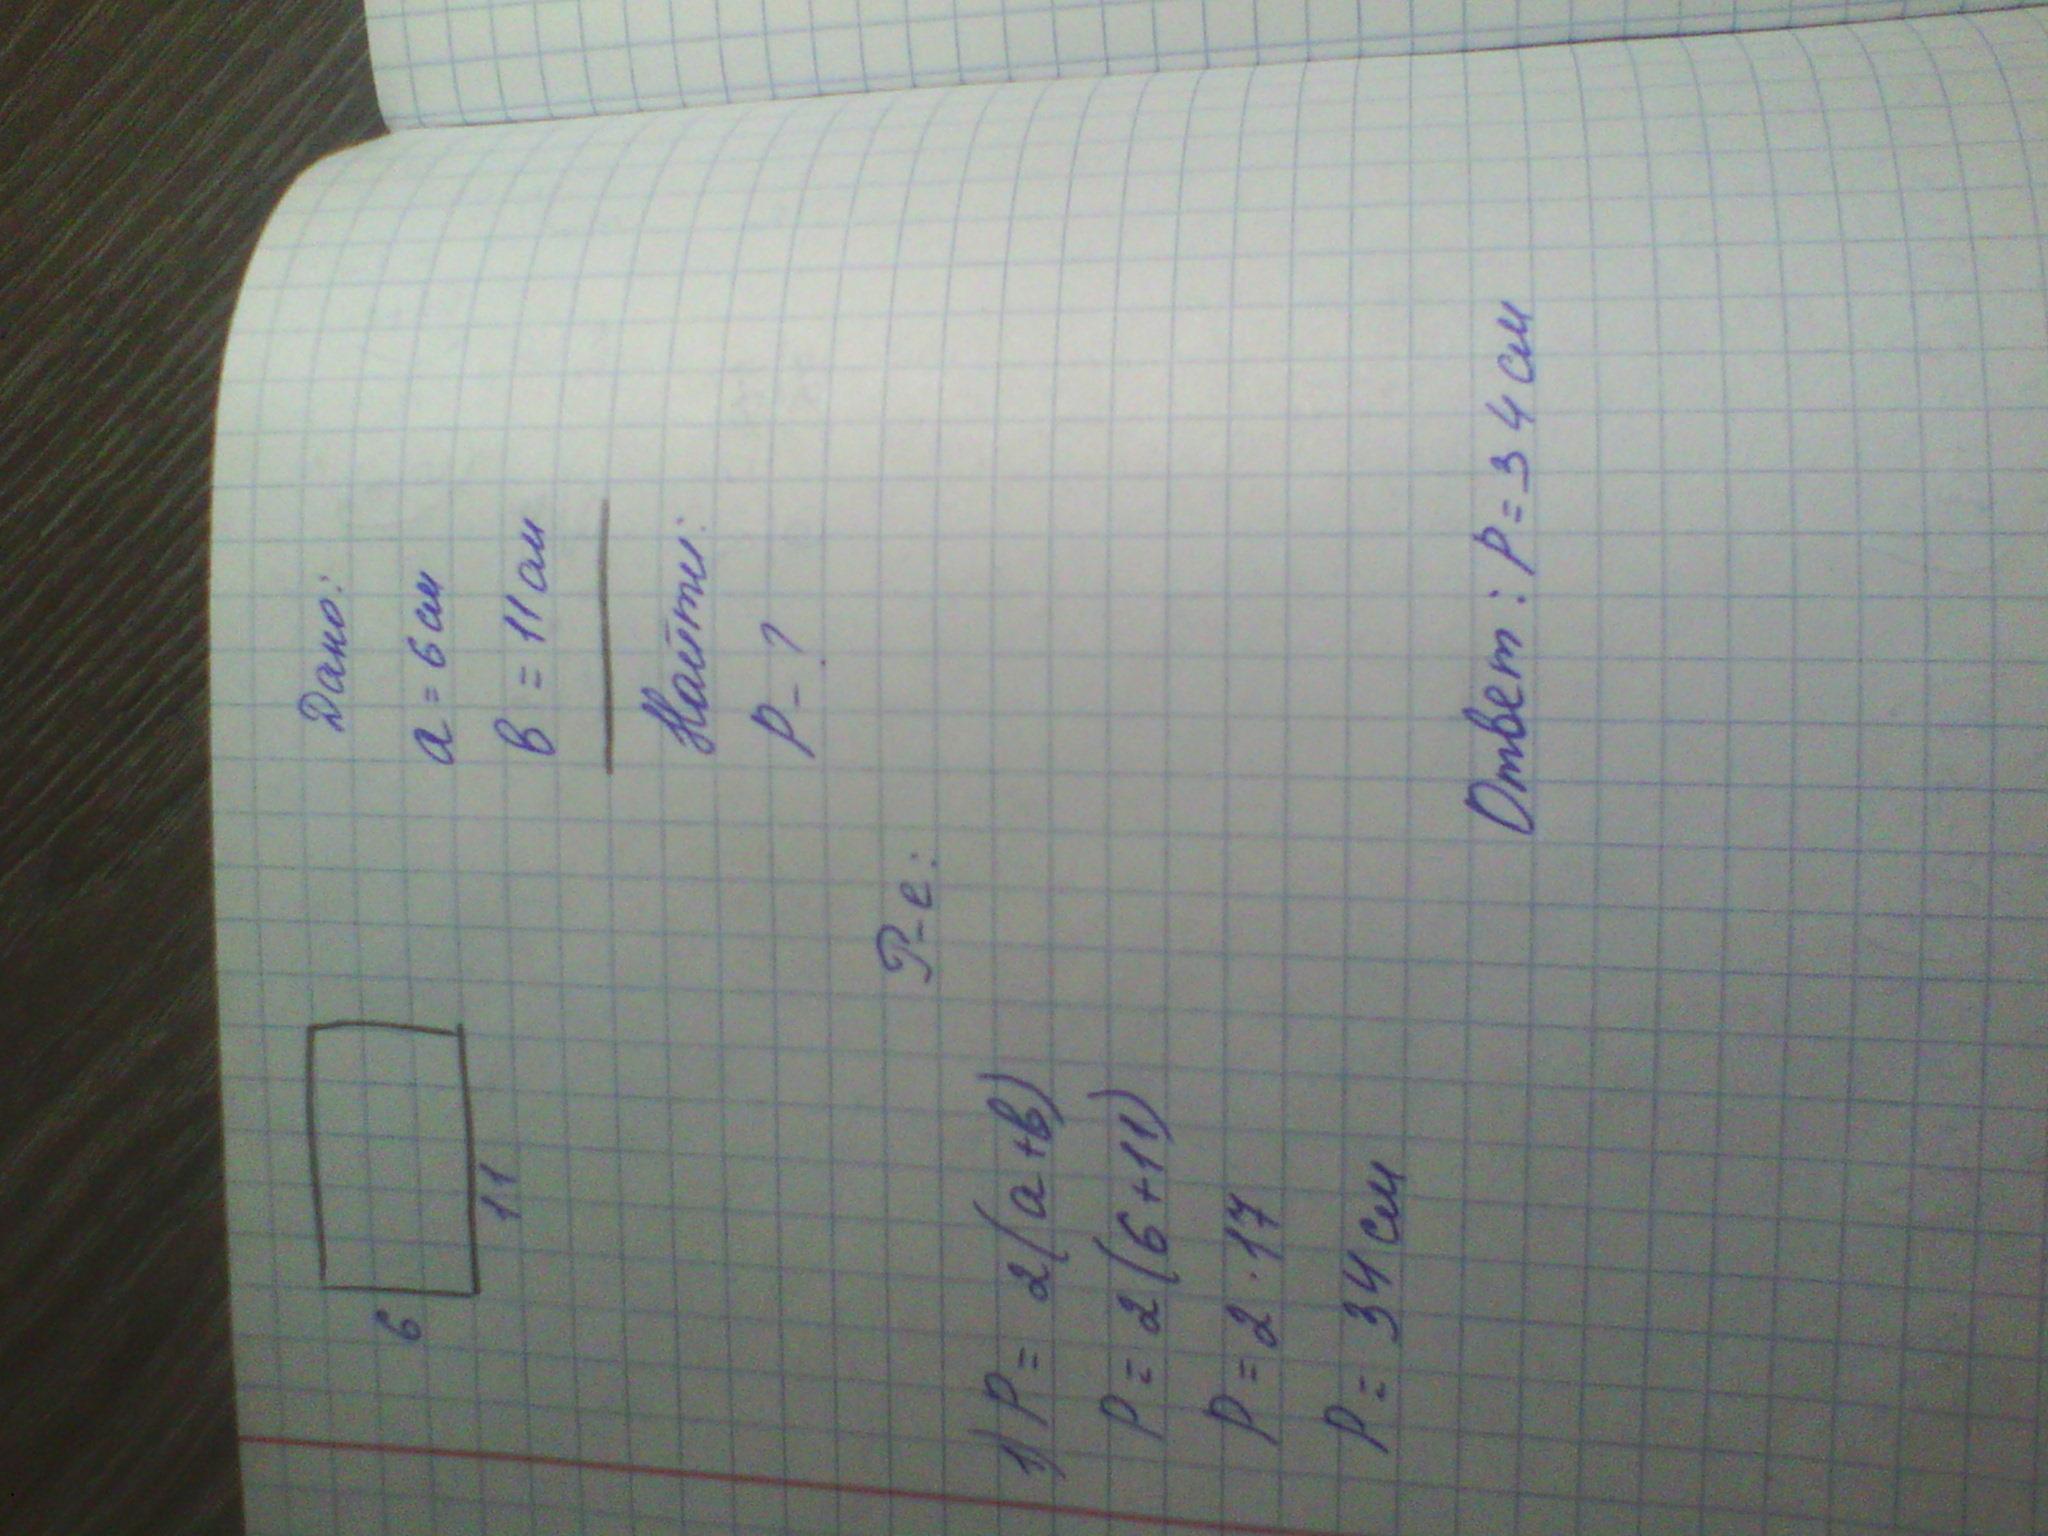 6
11
Дано:
a = 6 см
в = 11 см
Найти:
P - ?
Р-е:
1) P = 2(a+в)
P = 2(6+11)
P = 2 · 17
P = 34 см
Ответ: P = 34 см